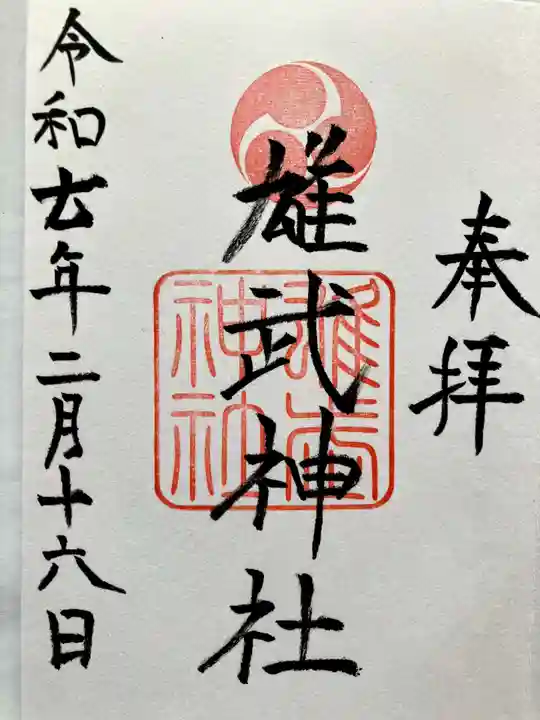 奉拝
雄武神社
雄武
神社
令和 年二月十六日